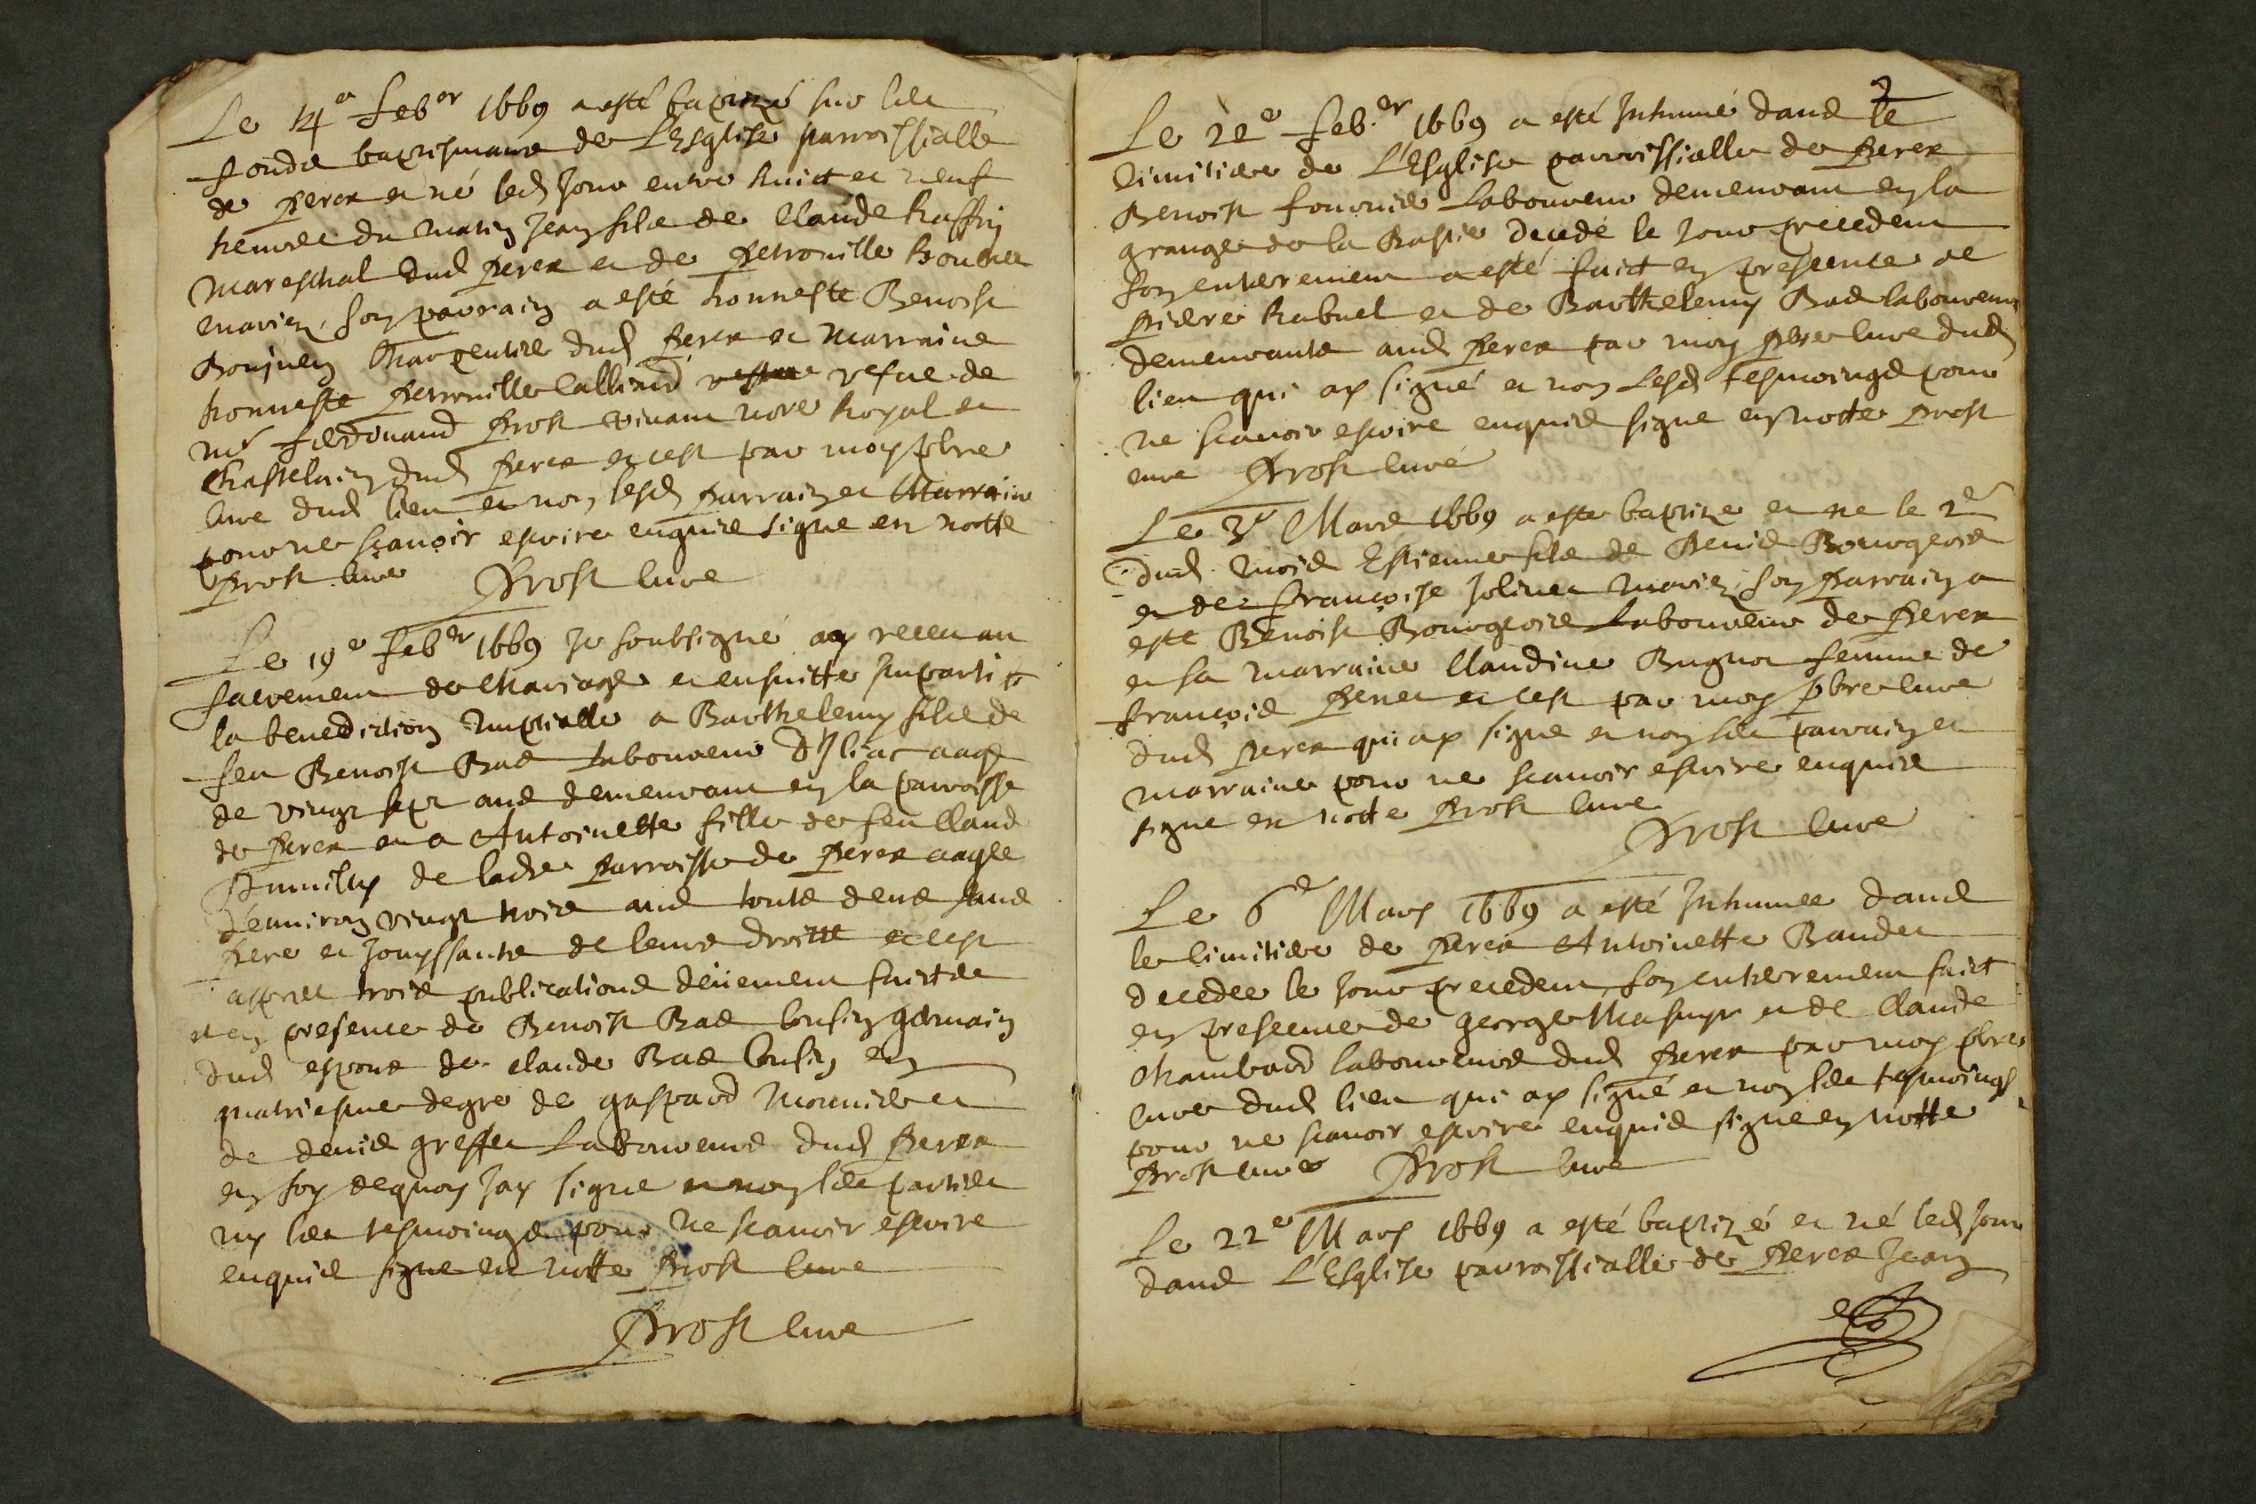 Le 14e Feber 1669 a esté baptizé sur les
fonds baptismaux de L'Esglise parroissialle
de Perex et né led jour entre huict et neuf
heures du matin Jean fils de Claude Raffin
mareschal dud Perex et de Petronille
mariez, son parrain a esté honneste Benoist
Boujuen Charpentier dud Perex et marraine
honneste Petronille Calliand vefue de
Mr Ferdinand Prost vivant nore Royal et
Chastelain dud Perex et cest par moy pbre
Cure dud lieu et non lesd parrain et Marraine
pour ne sçauoir escrire enquis signe en notte
Prost cure Prost cure
Le 19e Feber 1669 Je soubsigné ay receu au
sacrement de Mariage et ensuitte imparti
la benediction nuptialle a Barthelemy fils de
feu Benoist Bas Laboureur aage
de vingt sept ans demeurant en la parroisse
de Perex et a Antoinette fille de feu Claude
de ladte Parroisse de Perex aagee
d'enuiron vingt trois ans touts deux sans
Pere et jouyssants de leurs droitt et cest
appres trois publications deüement faictes
et en presence de Benoist Bas Cousin germain
dud espoux de claude Bas Cousin en
quatriesme degre de gaspard Monnier et
de denis greffet Laboureurs dud Perex
en foy dequoy jay signe et non les parties
ny les tesmoings pour ne scauoir escrire
enquis signe en notte Prost Cure
Prost Cure
2
Le 22e Feb.er 1669 a esté Inhumé dans le
Cimitiere de L'Esglise parroissialle de Perex
Benoist fournier Laboureur demeurant en la
grange de la Bastie decedé le jour precedent
son enterrement a esté faict en presence de
Pierre Rabuel et de Barthelemy Bas laboureurs
demeurants aud Perex par moy Pbre Cure dud
lieu qui ay signé et non Lesd tesmoings pour
ne scauoir escrire enquis signe en notte Prost
cure Prost Curé
Le 3e Mars 1669 a este baptize et ne le 2e
dud mois Estienne fils de Denis Bourgeois
et de Françoise Jolivet mariez, son Parrain a
este Benoist Bourgeois Laboureur de Perex
et sa marraine Claudine Bugnot femme de
françois Penet et cest par moy pbre Cure
dud Perex qui ay signe et non les parrain et
marraine pour ne scauoir escrire enquis
signe en notte Prost Cure
Prost Cure
Le 6e Mars 1669 a esté Inhumee dans
le Cimitiere de Perex Antoinette Baudet
decedee le jour precedent, son enterrement faict
en presence de george Masuyr et de Claude
Chambard laboureurs dud Perex par moy pbre
Cure dud lieu qui ay signé et non les tesmoings
pour ne scauoir escrire enquis signe en notte
Prost Cure Prost Cure
Le 22e Mars 1669 a esté baptizé et né led jour
dans L'Esglise parroissialle de Perex Jean